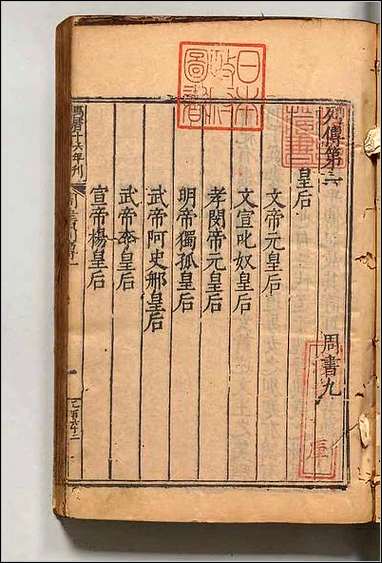 日本政府圖書
列傳第一　周書九
皇后
文帝元皇后
文宣叱奴皇后
孝閔帝元皇后
明帝獨孤皇后
武帝阿史那皇后
武帝李皇后
宣帝楊皇后
十六年刊